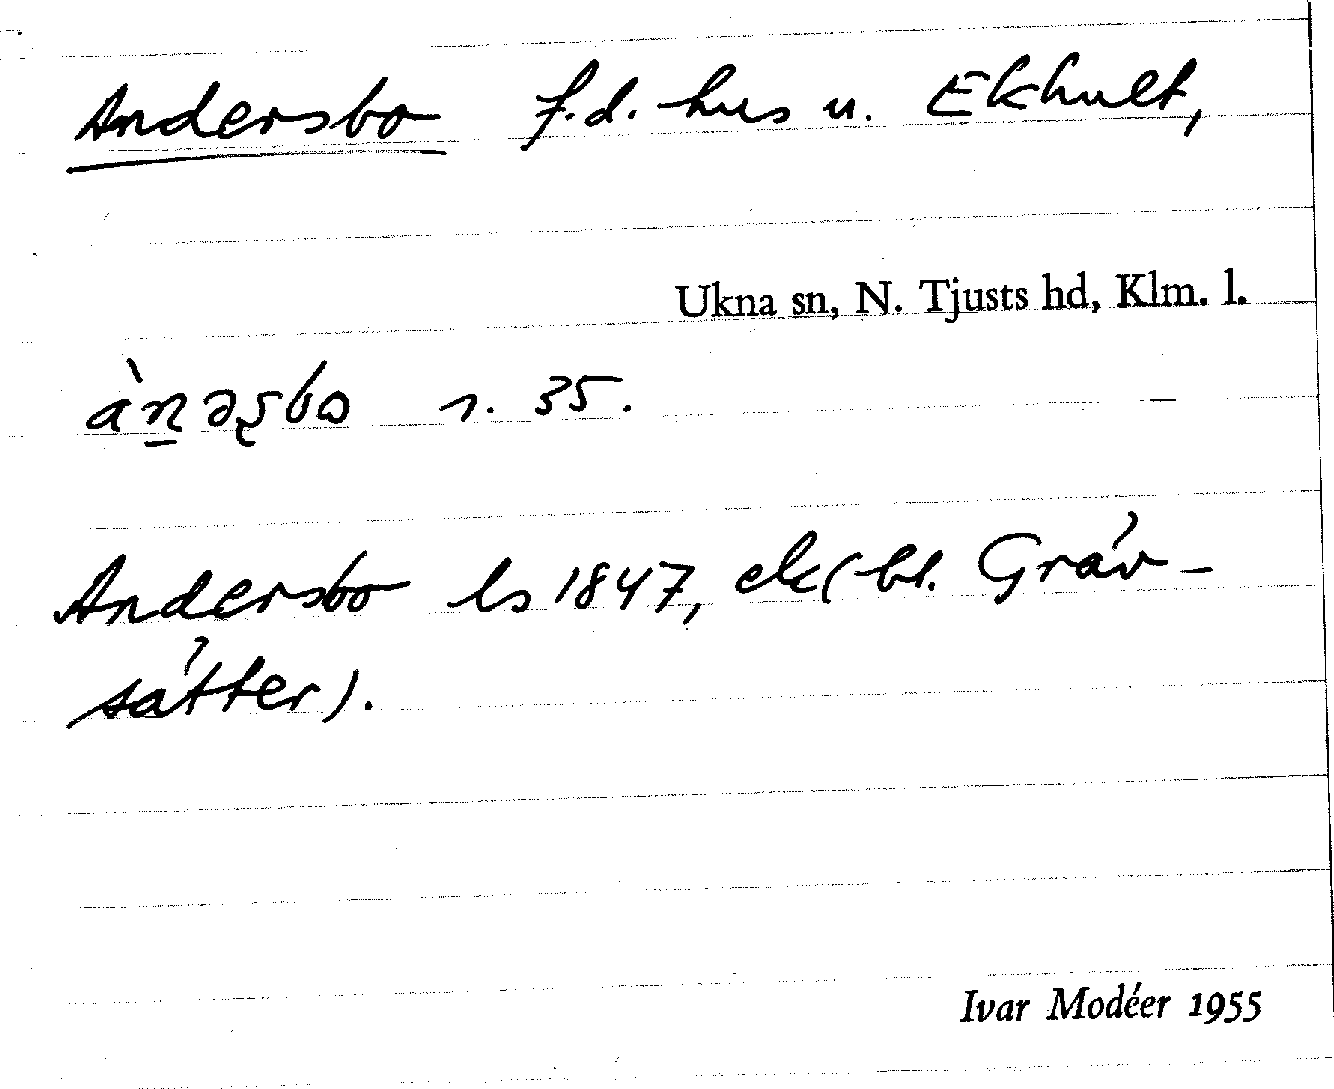 Andersbo f.d. hus u. Ekhult,
Ukna sn, N. Tjusts hd, Klm. l.
r. 35.
Andersbo ls 1847, ek (bl. Gräv-
sätter).
Ivar Modéer 1955